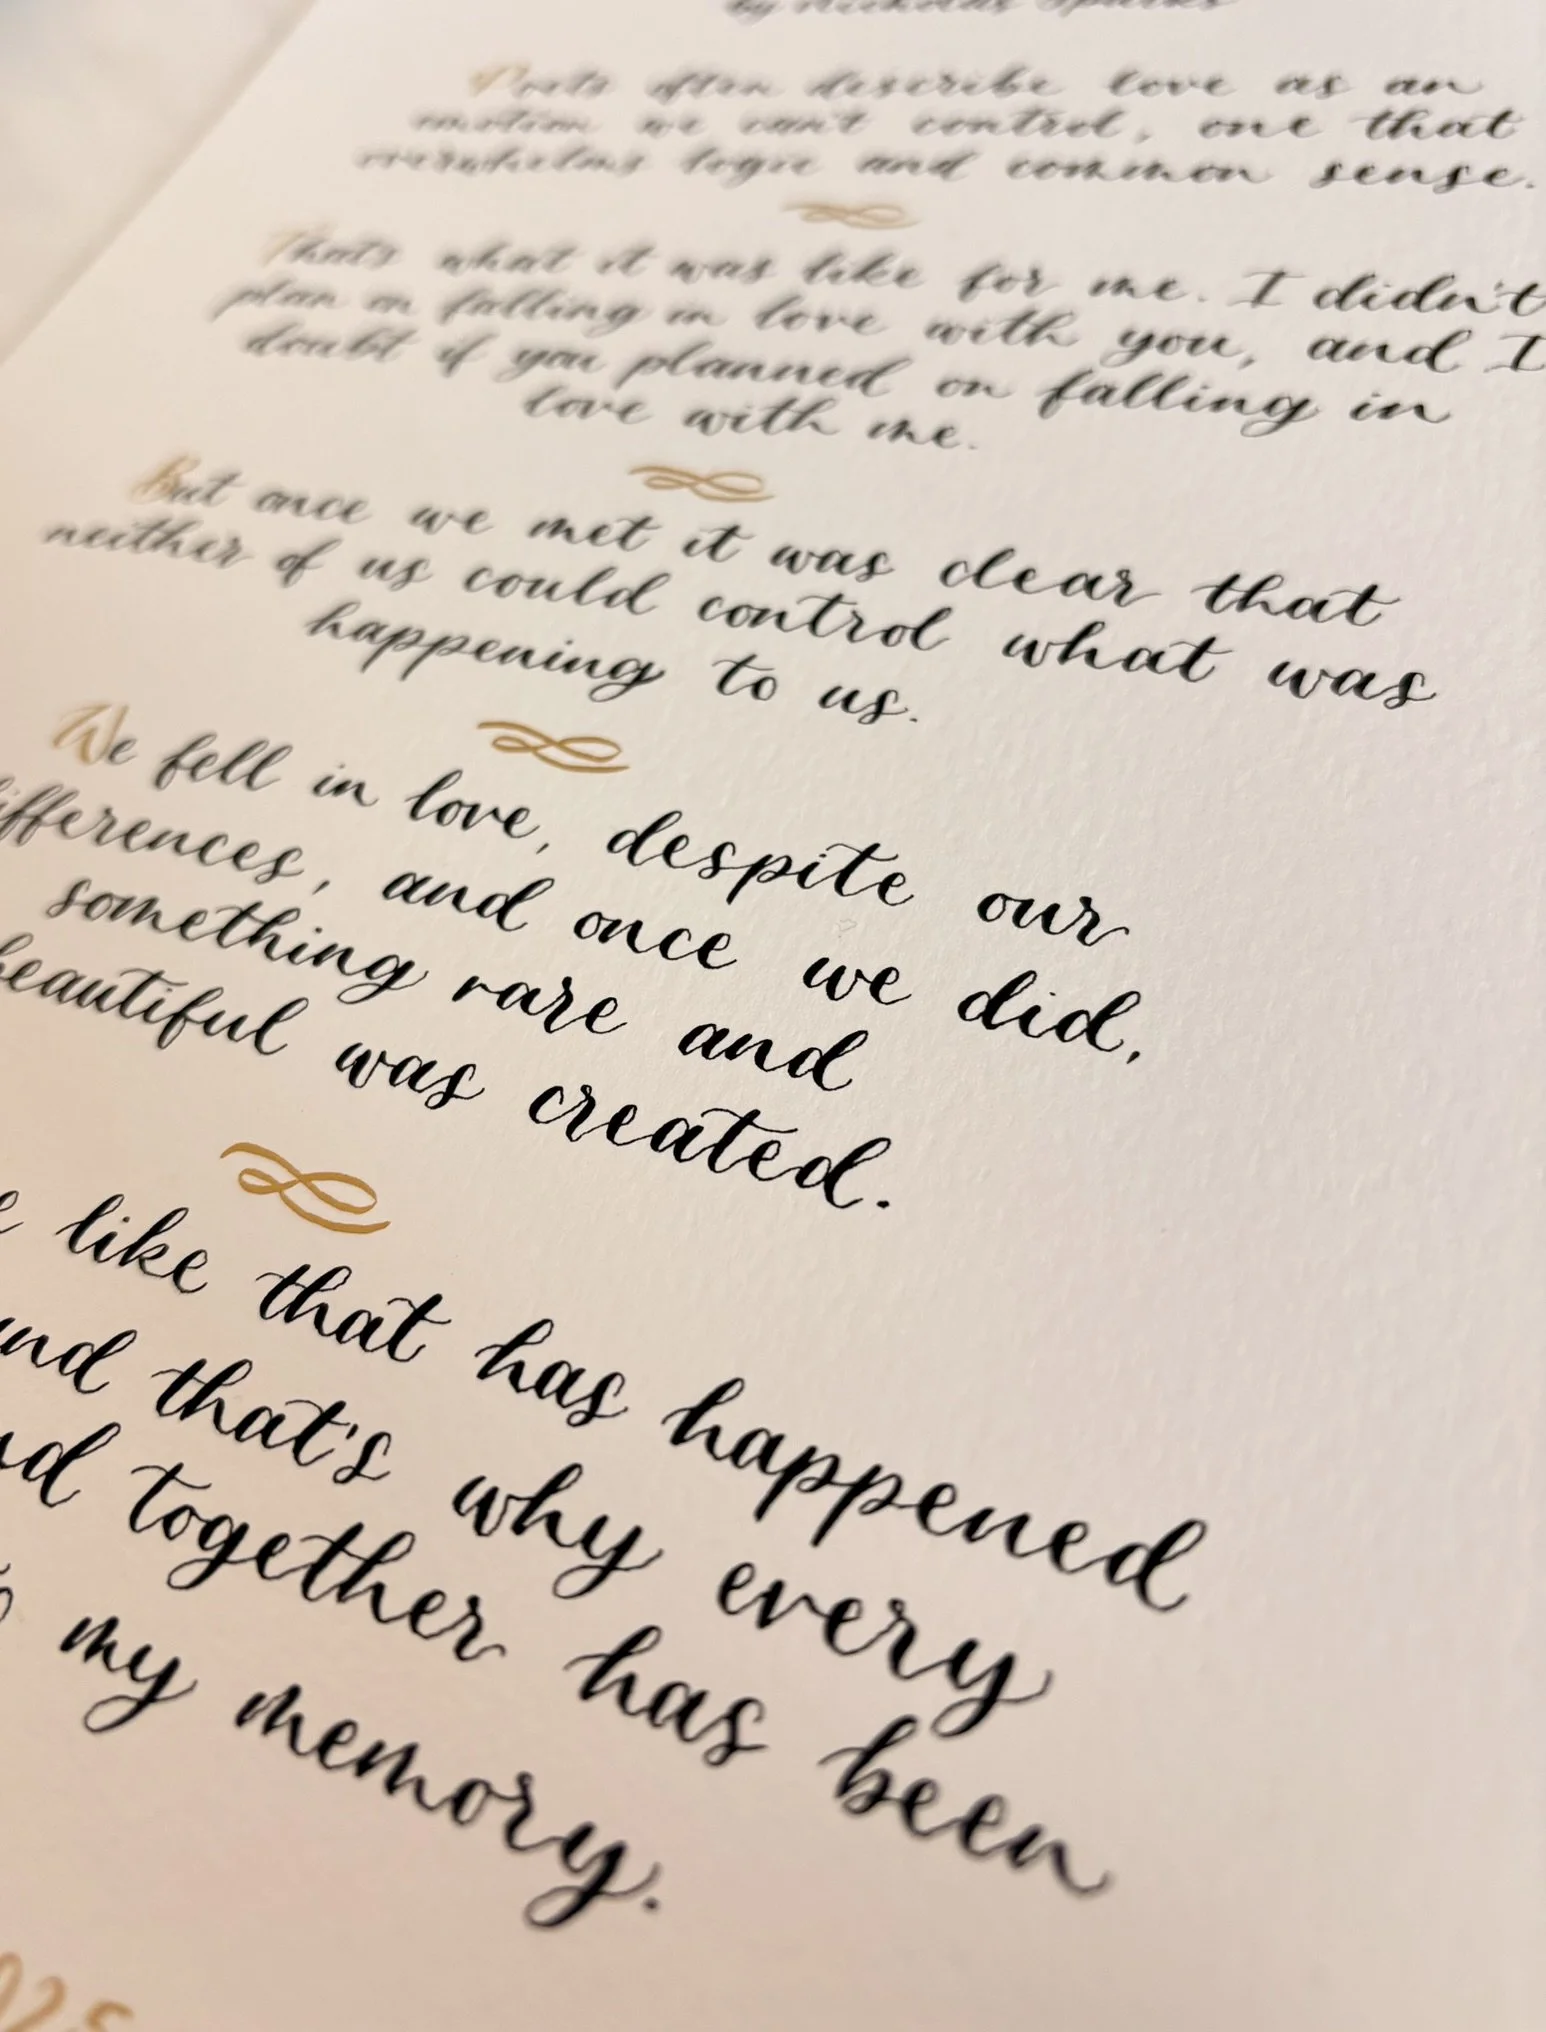 by Nicholas Sparks
Poets often describe love as an
emotion we can't control, one that
overwhelms logic and common sense.
That's what it was like for me. I didn't
plan on falling in love with you, and I
doubt if you planned on falling in
love with me.
But once we met it was clear that
neither of us could control what was
happening to us.
We fell in love, despite our
differences, and once we did,
something rare and
beautiful was created.
like that has happened
and that's why every
together has been
my memory.